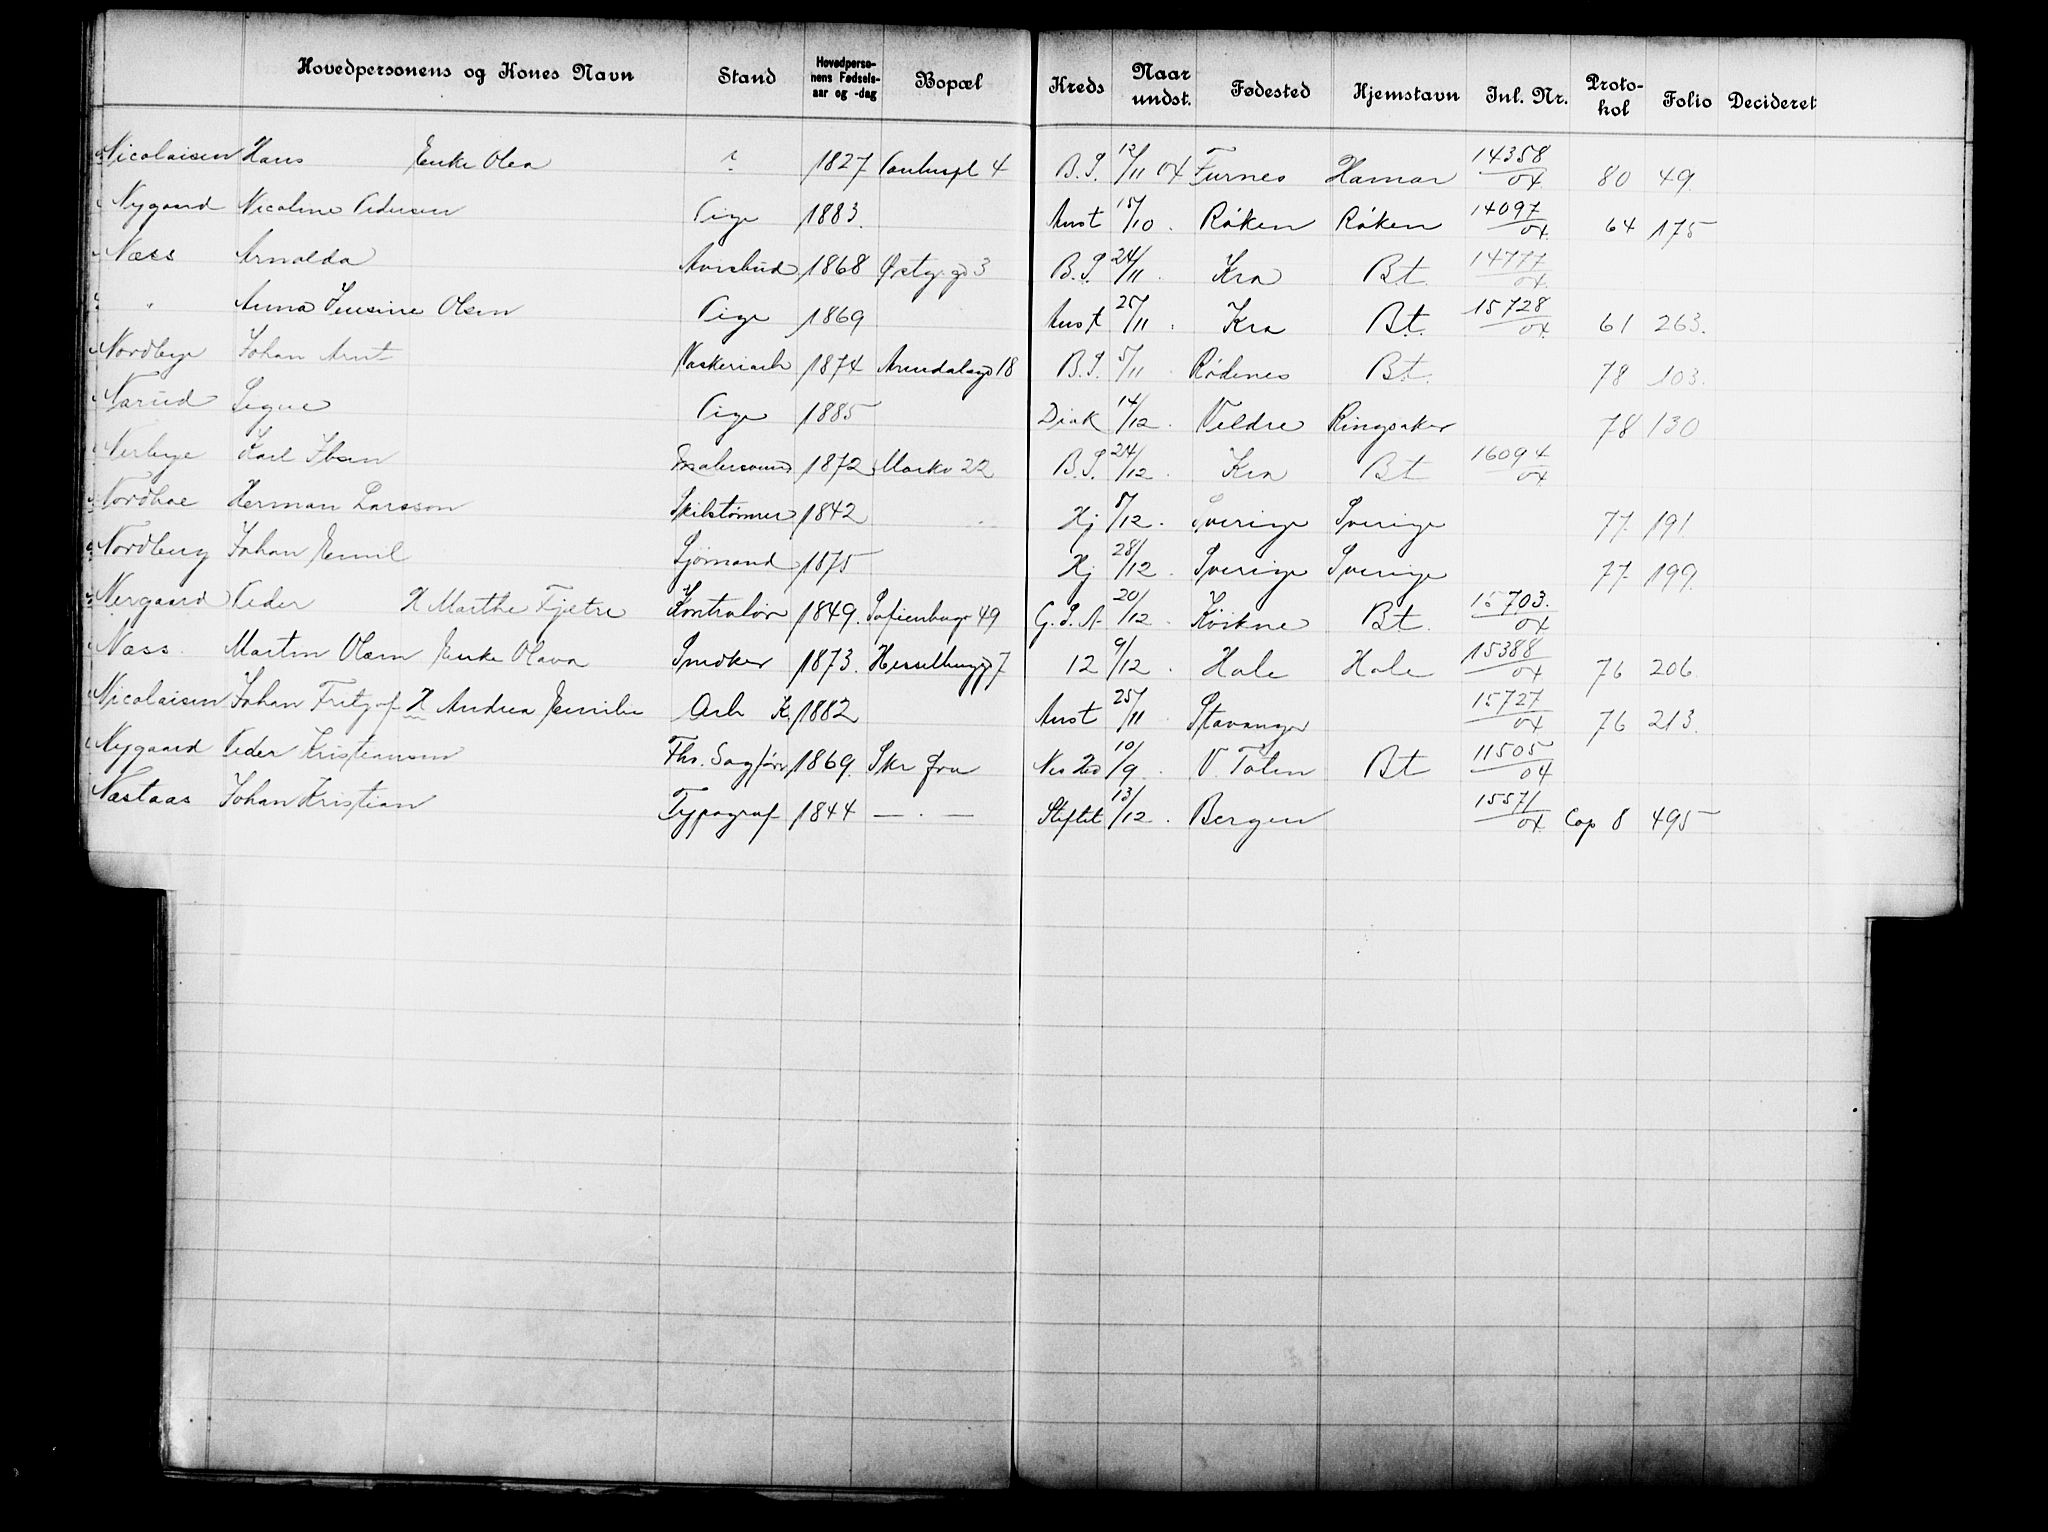 Hovedpersonens og Kones Navn Stand Hovedpersonens Fødselsaar og -dag Bopæl Kreds Naar undst. Fødested Hjemstavn Inl. Nr. Protokol Folio Decideret
Nicolaisen Hans Enke Olea 1827 4 B.S. 12/11 04 Furnes Hamar 14358/04 80 49
Nygaard Nicoline Pedersen Pige 1883. Anst 15/10. Røken Røken 14097/04. 64 175
Næss Arnolda Avisbud 1868 Østg. gd 3 B.S. 24/11. Kra Bt. 14777/04.
" Anna Jensine Olsen Pige 1869 Anst 25/11. Kra Bt. 15728/04 61 263.
Nordbye Johan Arnt Vaskeriarb 1874 Arendalsgd 18 B.S. 5/11 Rødenes Bt. 78 103.
Narud Signe Pige 1885 Diak 14/12. Veldre Ringsaker 78 130
Nerbye Karl Ibsen Malersvend 1872 Markv 22 B.S. 24/12. Kra Bt 16094/04
Nordhae Herman Larsson Skibstømrer 1842 Hj 8/12. Sverige Sverige 77. 191
Nordberg Johan Emil Sjømand 1875 Hj 28/12. Sverige Sverige 77. 199.
Nergaard Peder H Marthe Fjetre Kontrolør 1849. Sofienbergr 49 G.S.A. 20/12. Kvikne Bt. 15703./04
Næss. Martin Olsen Enke Olava Snedker 1873. Hesselbergsgd 7 12 9/12. Hole Hole 15388/04 76 206
Nicolaisen Johan Fritjof H Andrea Emilie Arb K. 1882 Anst 25/11. Stavanger 15727/04 76 213.
Nygaard Peder Kristiansen Fhv. Sagfører 1869. Skr. Nes 2ed 10/9. V. Toten Bt 11505/04
Næstaas Johan Kristian Typograf 1844 — . — Stiftet 13/12. Bergen 15571/04 Cop 8 495